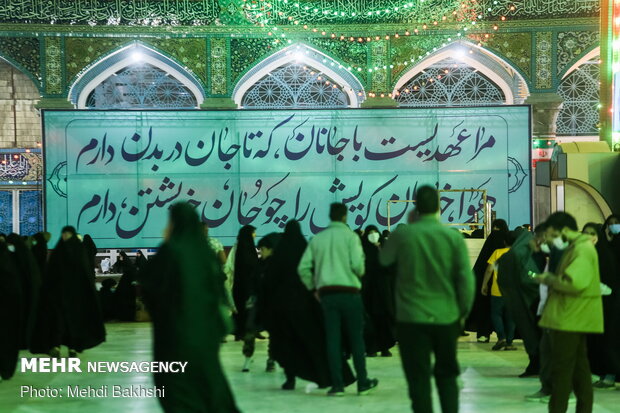 مرا عهدیست با جانان، که تا جان در بدن دارم
هواداران کویش را چو جان خویشتن دارم
MEHR NEWS AGENCY
Photo: Mehdi Bakhshi